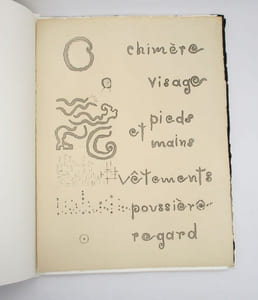 chimère
visage
pieds
et
mains
vêtements
poussière
regard